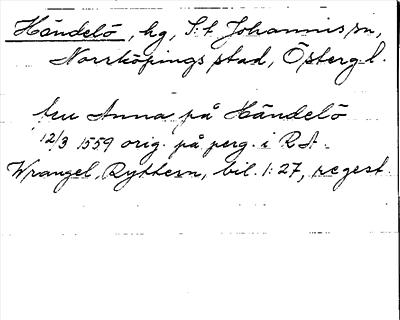 Händelö, hg, S:t Johannis sn,
Norrköpings stad, Östergl.
fru Anna på Händelö
12/3 1559 orig. på perg. i RA.
Wrangel, Ryttern, bil. 1:27, regest.